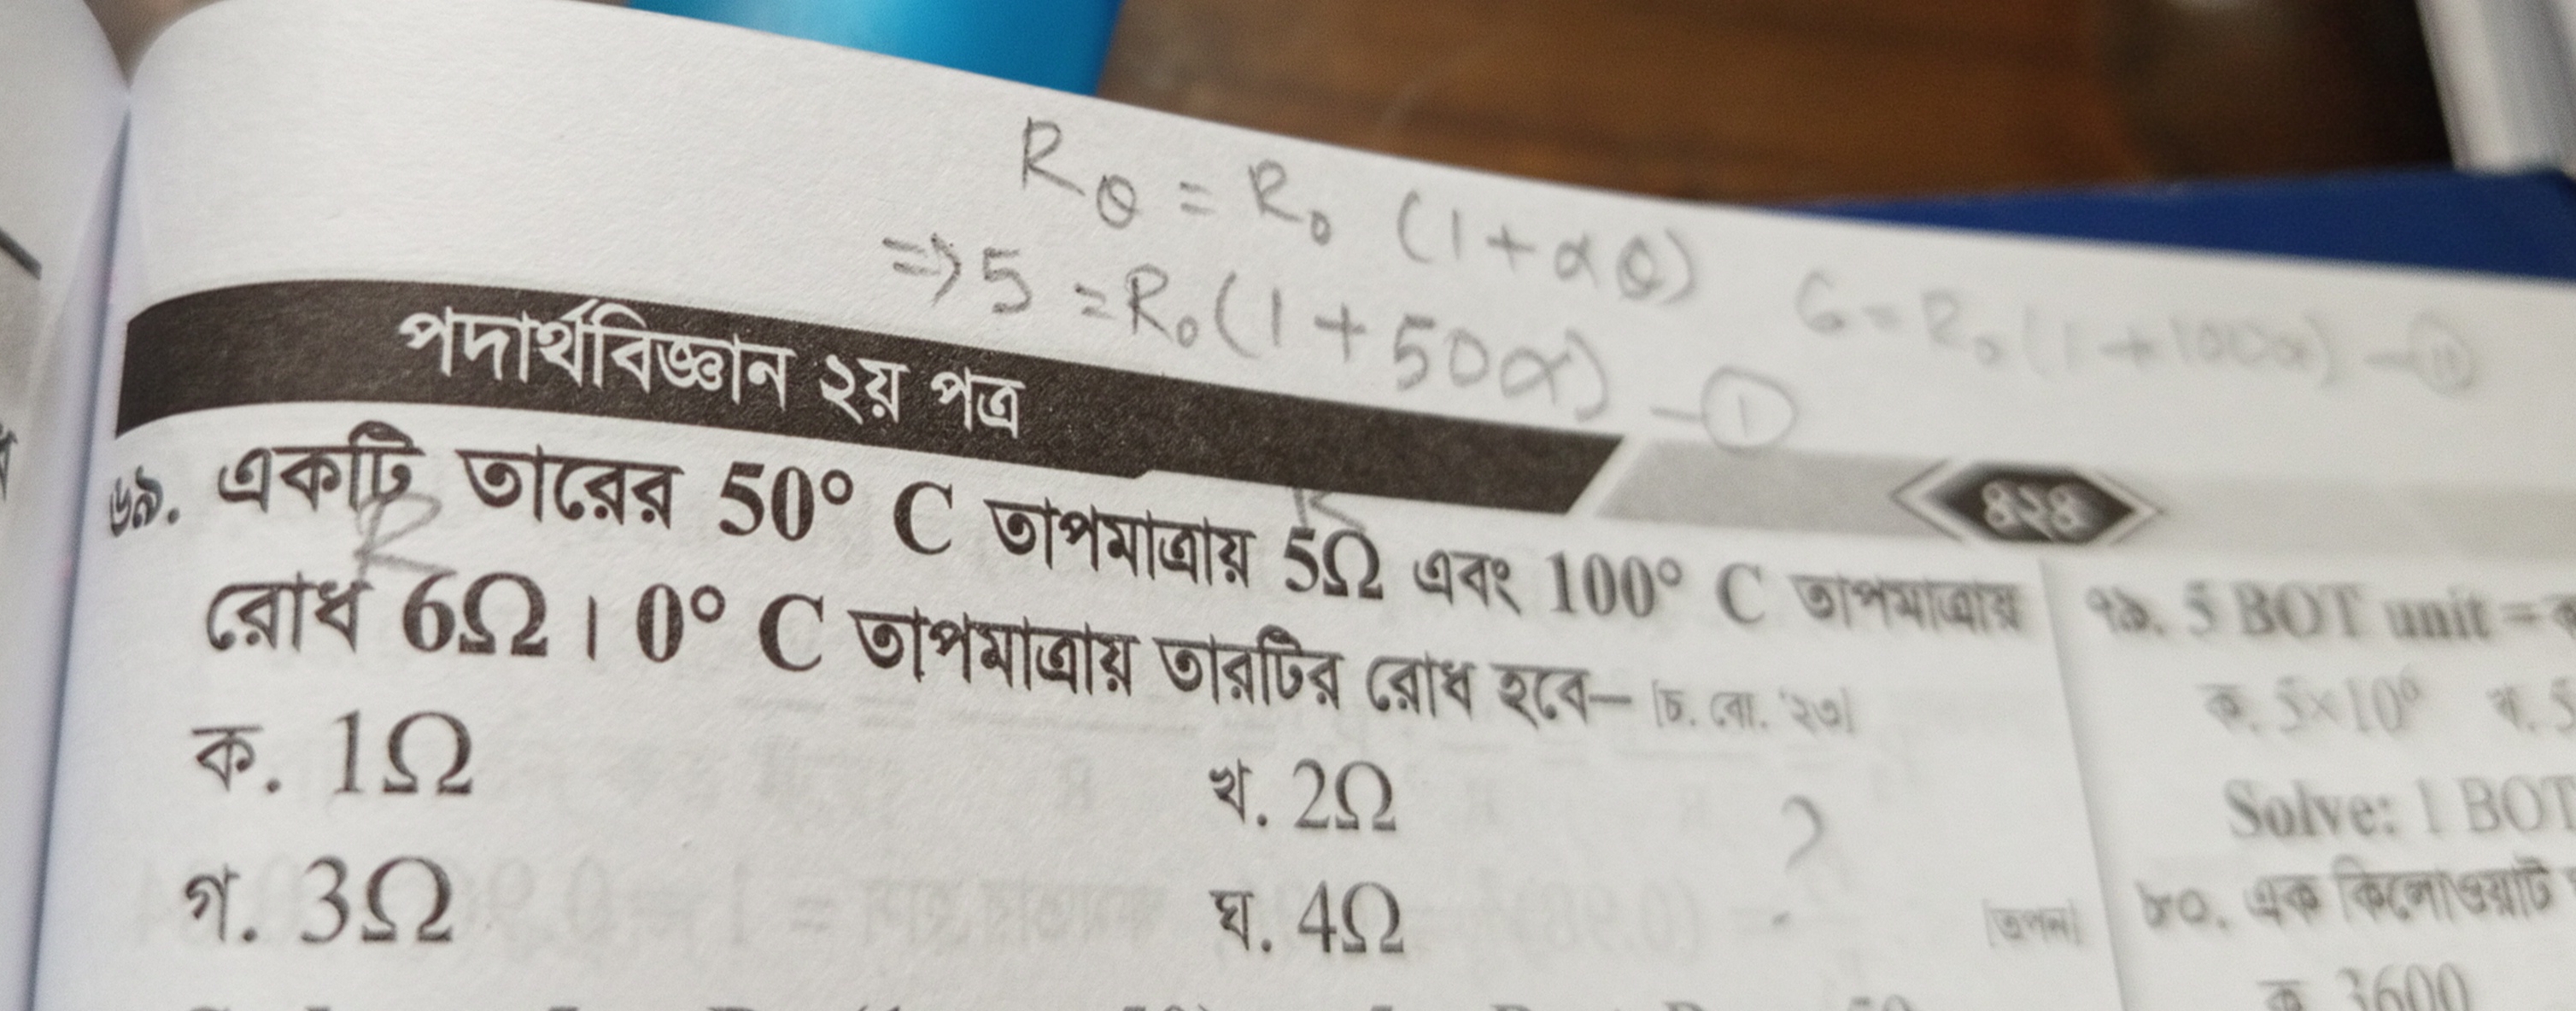 R_θ = R₀ (1 + αθ)
⇒ 5 = R₀ (1 + 50α) — ①
6 = R₀ (1 + 100α) — ⑪
পদার্থবিজ্ঞান ২য় পত্র
৪২৪
৬৯. একটি তারের 50° C তাপমাত্রায় 5Ω এবং 100° C তাপমাত্রায়
R
R
রোধ 6Ω। 0° C তাপমাত্রায় তারটির রোধ হবে– [চ. বো. '২৩]
ক. 1Ω
খ. 2Ω
গ. 3Ω
ঘ. 4Ω
?
[তপন]
৭৯. 5 BOT unit =
ক. 5×10⁶ খ. 5
Solve: 1 BOT
৮০. এক কিলোওয়াট
ক. 3600